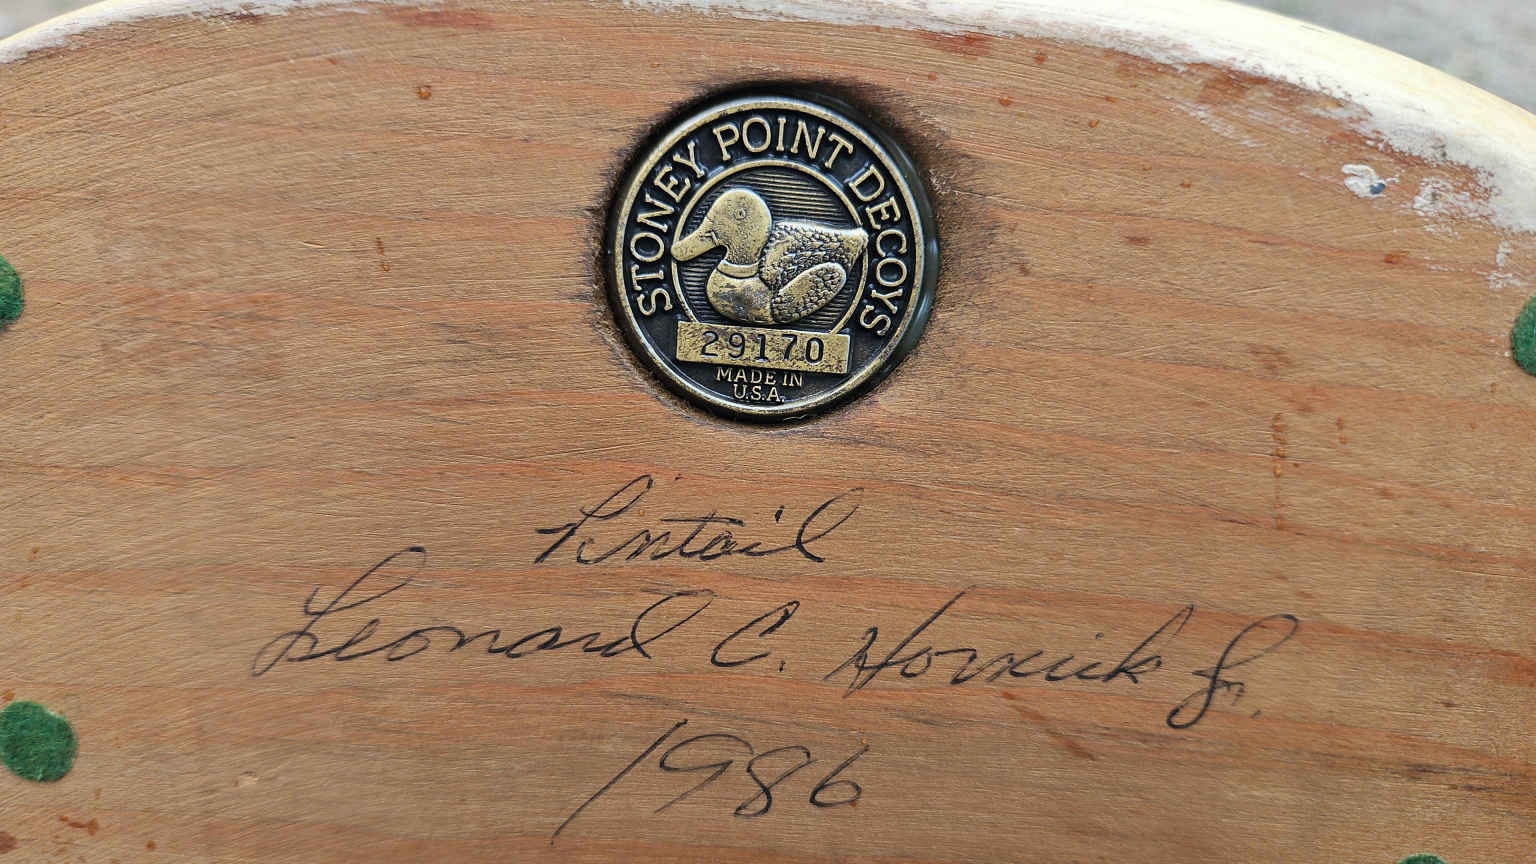 STONEY POINT DECOYS
29170
MADE IN
U.S.A.
Pintail
Leonard C. Hornick Jr.
1986